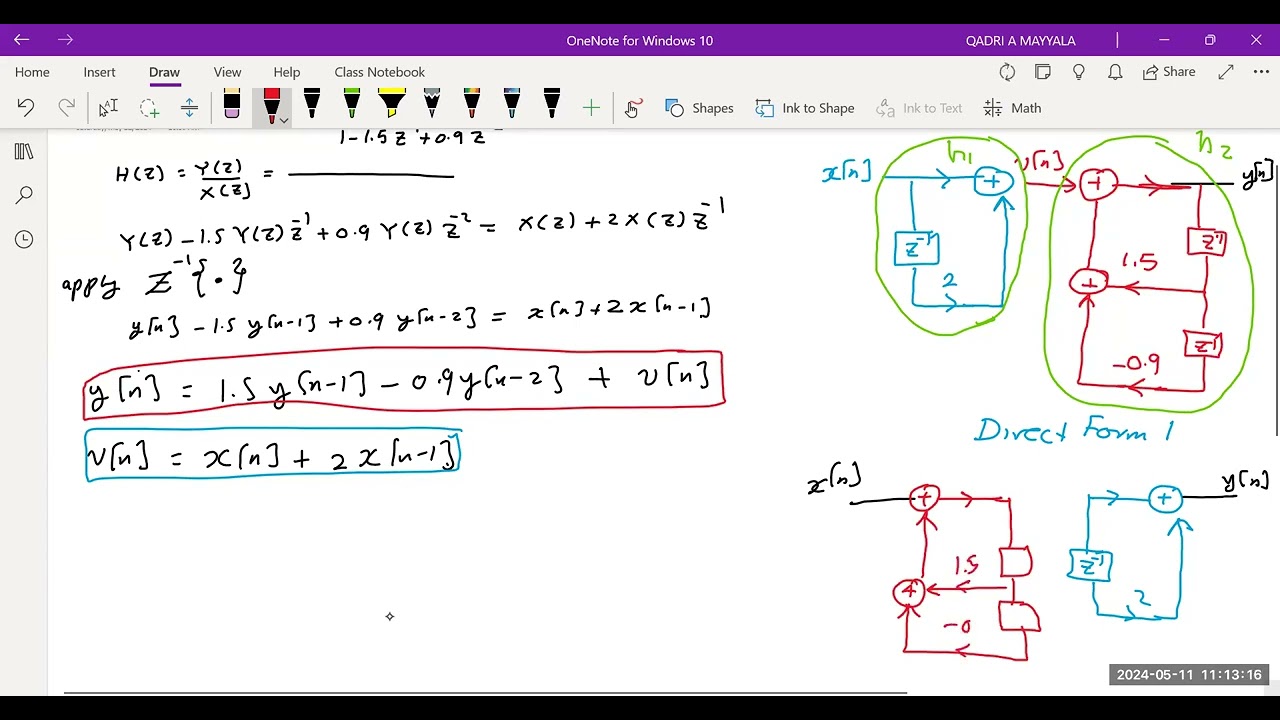 OneNote for Windows 10
QADRI A MAYYALA
Home Insert Draw View Help Class Notebook
Share
Shapes Ink to Shape Ink to Text Math
1-1.5 z⁻¹+0.9 z⁻
H(z) = Y(z)/X(z) =
Y(z) - 1.5 Y(z) z⁻¹ + 0.9 Y(z) z⁻² = X(z) + 2 X(z) z⁻¹
apply Z⁻¹{·}
y[n] - 1.5 y[n-1] + 0.9 y[n-2] = x[n] + 2 x[n-1]
y[n] = 1.5 y[n-1] - 0.9 y[n-2] + v[n]
v[n] = x[n] + 2 x[n-1]
x[n] h₁ v[n] h₂ y[n]
+ +
z⁻¹ z⁻¹
2 + 1.5
z⁻¹
-0.9
Direct Form 1
x[n] y[n]
+ +
1.5 z⁻¹
+ 2
-0
2024-05-11 11:13:16